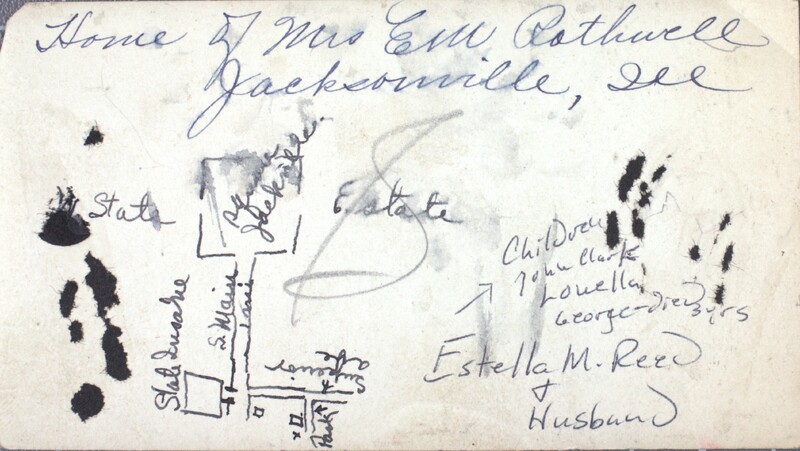 Home of Mrs E M Rothwell
Jacksonville, Ill
W State
Square
Jacksville.
E State
8
Children
John Clark
Louella
George-died 3 yrs
Estella M. Reed
+
Husband
S. Main
State Insane
Park
x